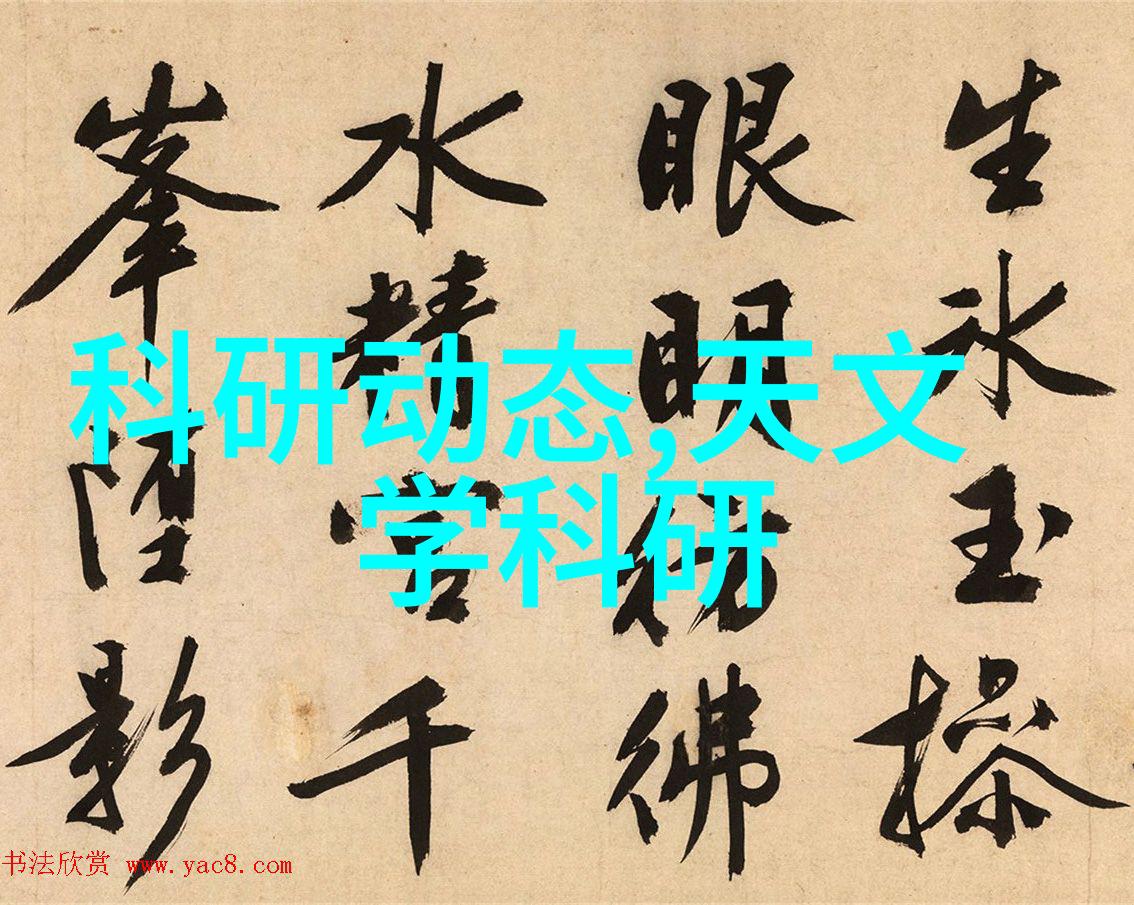 科研动态,天文
学科研
生氷玉操
眼明彷彿
水精宮千
峯堕影
书法欣赏 www.yac8.com